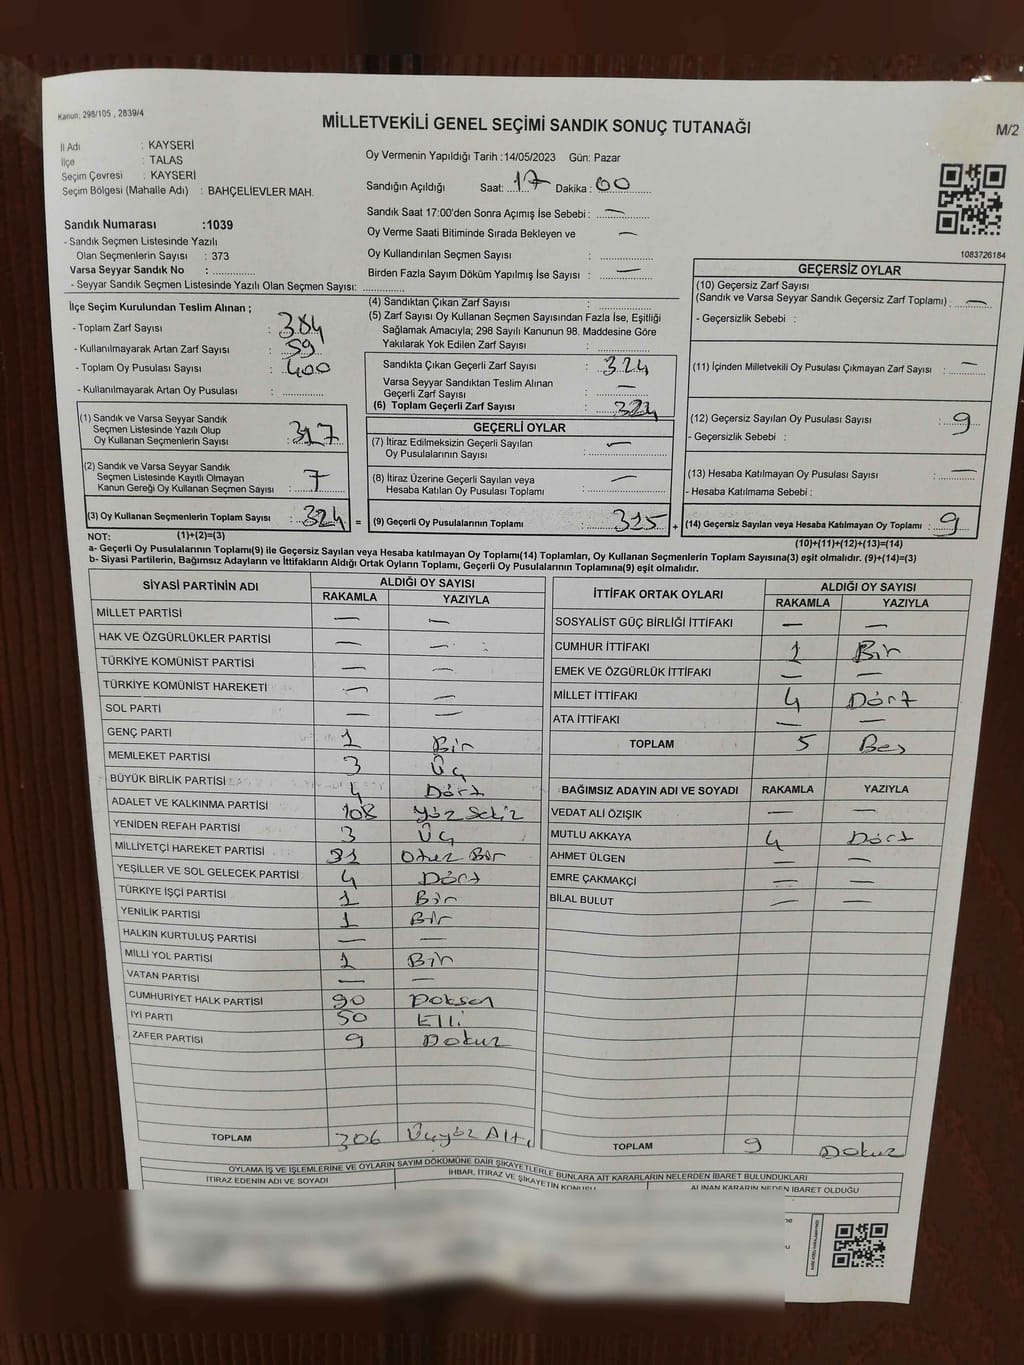 Kanun, 298/105 , 2839/4
MİLLETVEKİLİ GENEL SEÇİMİ SANDIK SONUÇ TUTANAĞI
M/2
İl Adı : KAYSERİ
İlçe : TALAS
Seçim Çevresi : KAYSERİ
Seçim Bölgesi (Mahalle Adı) : BAHÇELİEVLER MAH.
Oy Vermenin Yapıldığı Tarih :14/05/2023 Gün: Pazar
Sandığın Açıldığı Saat: 17 Dakika : 00
Sandık Saat 17:00'den Sonra Açımış İse Sebebi : —
Oy Verme Saati Bitiminde Sırada Bekleyen ve —
Oy Kullandırılan Seçmen Sayısı :
Birden Fazla Sayım Döküm Yapılmış İse Sayısı : —
1083726184
Sandık Numarası :1039
- Sandık Seçmen Listesinde Yazılı
Olan Seçmenlerin Sayısı : 373
Varsa Seyyar Sandık No :
- Seyyar Sandık Seçmen Listesinde Yazılı Olan Seçmen Sayısı:
İlçe Seçim Kurulundan Teslim Alınan ;
- Toplam Zarf Sayısı : 384
- Kullanılmayarak Artan Zarf Sayısı : 59
- Toplam Oy Pusulası Sayısı : 400
- Kullanılmayarak Artan Oy Pusulası :
(1) Sandık ve Varsa Seyyar Sandık
Seçmen Listesinde Yazılı Olup
Oy Kullanan Seçmenlerin Sayısı : 317
(2) Sandık ve Varsa Seyyar Sandık
Seçmen Listesinde Kayıtlı Olmayan
Kanun Gereği Oy Kullanan Seçmen Sayısı : 7
(3) Oy Kullanan Seçmenlerin Toplam Sayısı : 324 =
(4) Sandıktan Çıkan Zarf Sayısı :
(5) Zarf Sayısı Oy Kullanan Seçmen Sayısından Fazla İse, Eşitliği
Sağlamak Amacıyla; 298 Sayılı Kanunun 98. Maddesine Göre
Yakılarak Yok Edilen Zarf Sayısı :
Sandıkta Çıkan Geçerli Zarf Sayısı : 324
Varsa Seyyar Sandıktan Teslim Alınan
Geçerli Zarf Sayısı : —
(6) Toplam Geçerli Zarf Sayısı : 324
GEÇERLİ OYLAR
(7) İtiraz Edilmeksizin Geçerli Sayılan
Oy Pusulalarının Sayısı : —
(8) İtiraz Üzerine Geçerli Sayılan veya
Hesaba Katılan Oy Pusulası Toplamı : —
(9) Geçerli Oy Pusulalarının Toplamı : 315 +
GEÇERSİZ OYLAR
(10) Geçersiz Zarf Sayısı
(Sandık ve Varsa Seyyar Sandık Geçersiz Zarf Toplamı) : —
- Geçersizlik Sebebi :
(11) İçinden Milletvekili Oy Pusulası Çıkmayan Zarf Sayısı : —
(12) Geçersiz Sayılan Oy Pusulası Sayısı : 9
- Geçersizlik Sebebi :
(13) Hesaba Katılmayan Oy Pusulası Sayısı : —
- Hesaba Katılmama Sebebi :
(14) Geçersiz Sayılan veya Hesaba Katılmayan Oy Toplamı : 9
NOT: (1)+(2)=(3) (10)+(11)+(12)+(13)=(14)
a- Geçerli Oy Pusulalarının Toplamı(9) ile Geçersiz Sayılan veya Hesaba katılmayan Oy Toplamı(14) Toplamları, Oy Kullanan Seçmenlerin Toplam Sayısına(3) eşit olmalıdır. (9)+(14)=(3)
b- Siyasi Partilerin, Bağımsız Adayların ve İttifakların Aldığı Ortak Oyların Toplamı, Geçerli Oy Pusulalarının Toplamına(9) eşit olmalıdır.
SİYASİ PARTİNİN ADI ALDIĞI OY SAYISI
RAKAMLA YAZIYLA
MİLLET PARTİSİ — —
HAK VE ÖZGÜRLÜKLER PARTİSİ — —
TÜRKİYE KOMÜNİST PARTİSİ — —
TÜRKİYE KOMÜNİST HAREKETİ — —
SOL PARTİ — —
GENÇ PARTİ 1 Bir
MEMLEKET PARTİSİ 3 Üç
BÜYÜK BİRLİK PARTİSİ 4 Dört
ADALET VE KALKINMA PARTİSİ 108 Yüz Sekiz
YENİDEN REFAH PARTİSİ 3 Üç
MİLLİYETÇİ HAREKET PARTİSİ 31 Otuz Bir
YEŞİLLER VE SOL GELECEK PARTİSİ 4 Dört
TÜRKİYE İŞÇİ PARTİSİ 1 Bir
YENİLİK PARTİSİ 1 Bir
HALKIN KURTULUŞ PARTİSİ — —
MİLLİ YOL PARTİSİ 1 Bir
VATAN PARTİSİ — —
CUMHURİYET HALK PARTİSİ 90 Doksan
İYİ PARTİ 50 Elli
ZAFER PARTİSİ 9 Dokuz
TOPLAM 306 Üçyüz Altı
İTTİFAK ORTAK OYLARI ALDIĞI OY SAYISI
RAKAMLA YAZIYLA
SOSYALİST GÜÇ BİRLİĞİ İTTİFAKI — —
CUMHUR İTTİFAKI 1 Bir
EMEK VE ÖZGÜRLÜK İTTİFAKI — —
MİLLET İTTİFAKI 4 Dört
ATA İTTİFAKI — —
TOPLAM 5 Beş
BAĞIMSIZ ADAYIN ADI VE SOYADI RAKAMLA YAZIYLA
VEDAT ALİ ÖZIŞIK — —
MUTLU AKKAYA 4 Dört
AHMET ÜLGEN — —
EMRE ÇAKMAKÇİ — —
BİLAL BULUT — —
TOPLAM 9 Dokuz
OYLAMA İŞ VE İŞLEMLERİNE VE OYLARIN SAYIM DÖKÜMÜNE DAİR ŞİKAYETLERLE BUNLARA AİT KARARLARIN NELERDEN İBARET BULUNDUKLARI
İTİRAZ EDENİN ADI VE SOYADI
İHBAR, İTİRAZ VE ŞİKAYETİN KONUSU
ALINAN KARARIN NEDEN İBARET OLDUĞU